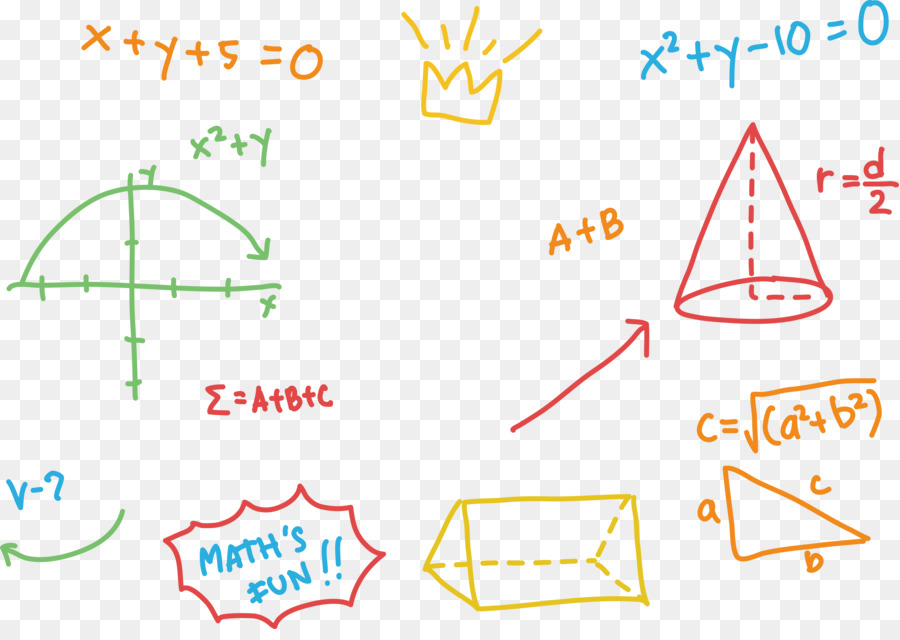 x + y + 5 = 0
x² + y - 10 = 0
x² + y
y
r = d/2
A + B
x
Σ = A+B+C
c = √(a²+b²)
v - ?
c
a
MATH'S
FUN!!
b